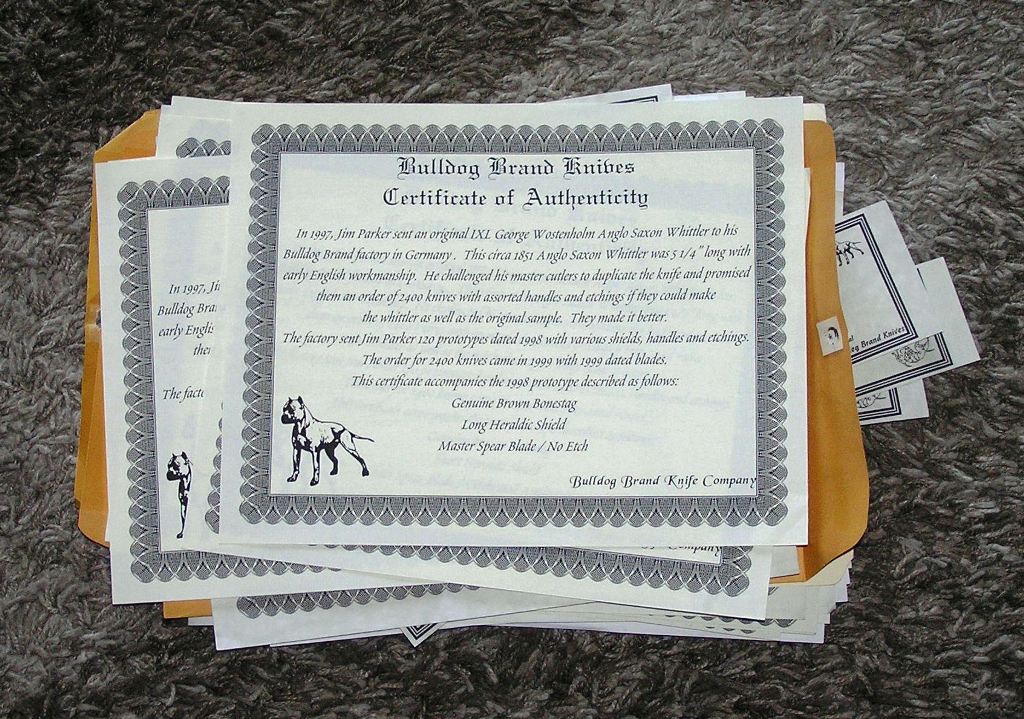 Bulldog Brand Knives
Certificate of Authenticity
In 1997, Jim Parker sent an original IXL George Wostenholm Anglo Saxon Whittler to his
Bulldog Brand factory in Germany . This circa 1851 Anglo Saxon Whittler was 5 1/4" long with
early English workmanship. He challenged his master cutlers to duplicate the knife and promised
them an order of 2400 knives with assorted handles and etchings if they could make
the whittler as well as the original sample. They made it better.
The factory sent Jim Parker 120 prototypes dated 1998 with various shields, handles and etchings.
The order for 2400 knives came in 1999 with 1999 dated blades.
This certificate accompanies the 1998 prototype described as follows:
Genuine Brown Bonestag
Long Heraldic Shield
Master Spear Blade / No Etch
Bulldog Brand Knife Company
In 1997,
Bulldog
early
The
Company
Brand Knives